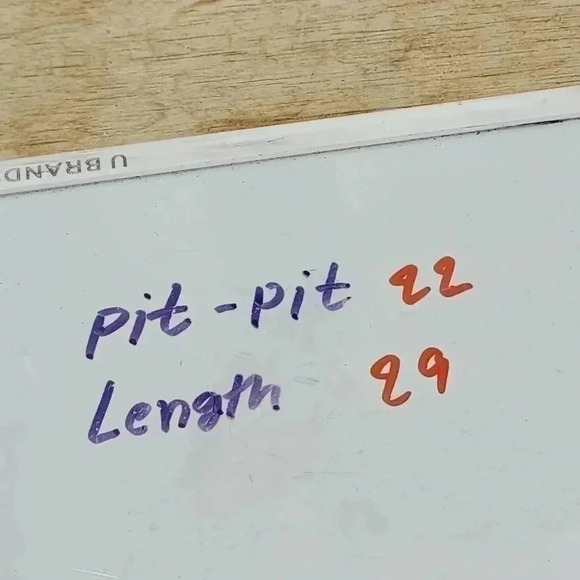 U BRANDS
pit-pit 22
Length 29